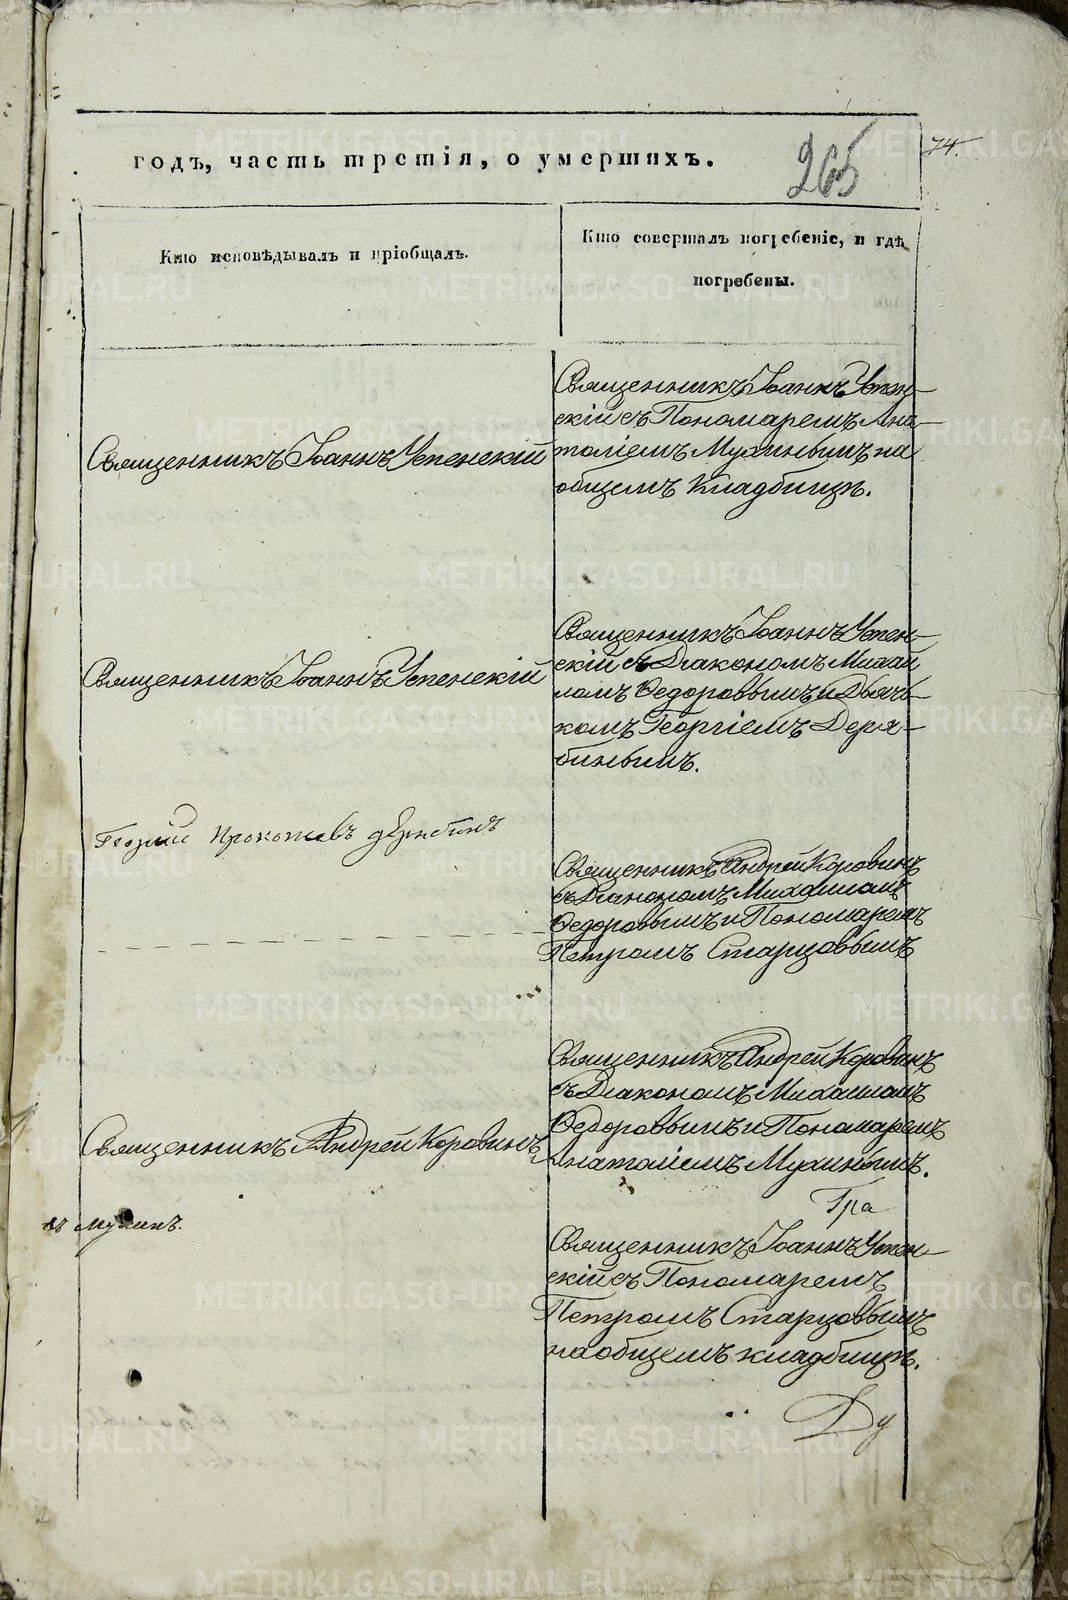 годъ, часть третія, о умершихъ.
265
74.
Кто исповѣдывалъ и пріобщалъ.
Кто совершалъ погребеніе, и гдѣ
погребены.
Священникъ Іоаннъ Успенскій
Священникъ Іоаннъ Успен-
скій съ Пономаремъ Ана-
толіемъ Мухинымъ на
общемъ кладбищѣ.
Священникъ Іоаннъ Успенскій
Священникъ Іоаннъ Успен-
скій съ Діакономъ Михаи
ломъ Федоровымъ и Дьяч-
комъ Георгіемъ Деря-
бинымъ.
Георгій Прокопьевъ Дерябинъ
Священникъ Андрей Коровинъ
съ Діакономъ Михаиломъ
Федоровымъ и Пономаремъ
Петромъ Старцовымъ
Священникъ Андрей Коровинъ
Священникъ Андрей Коровинъ
съ Діакономъ Михаиломъ
Федоровымъ и Пономаремъ
Анатоліемъ Мухинымъ.
Гра
Мухинъ.
Священникъ Іоаннъ Успен-
скій съ Пономаремъ
Петромъ Старцовымъ
на общемъ кладбищѣ.
Ду
METRIKI.GASO-URAL.RU